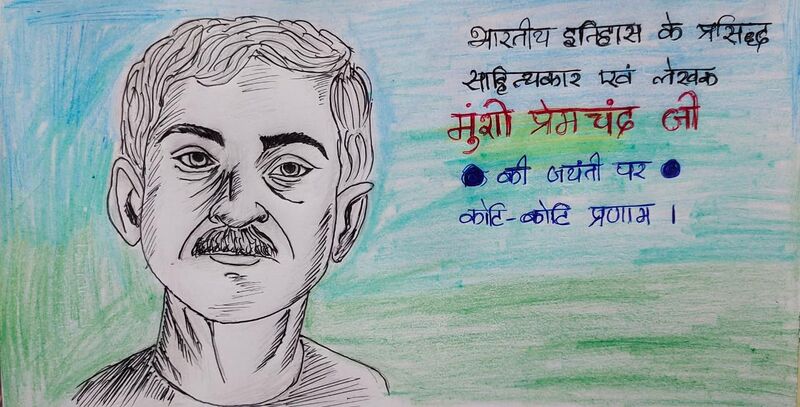 भारतीय इतिहास के प्रसिद्ध
साहित्यकार एवं लेखक
मुंशी प्रेमचंद जी
की जयंती पर
कोटि-कोटि प्रणाम ।